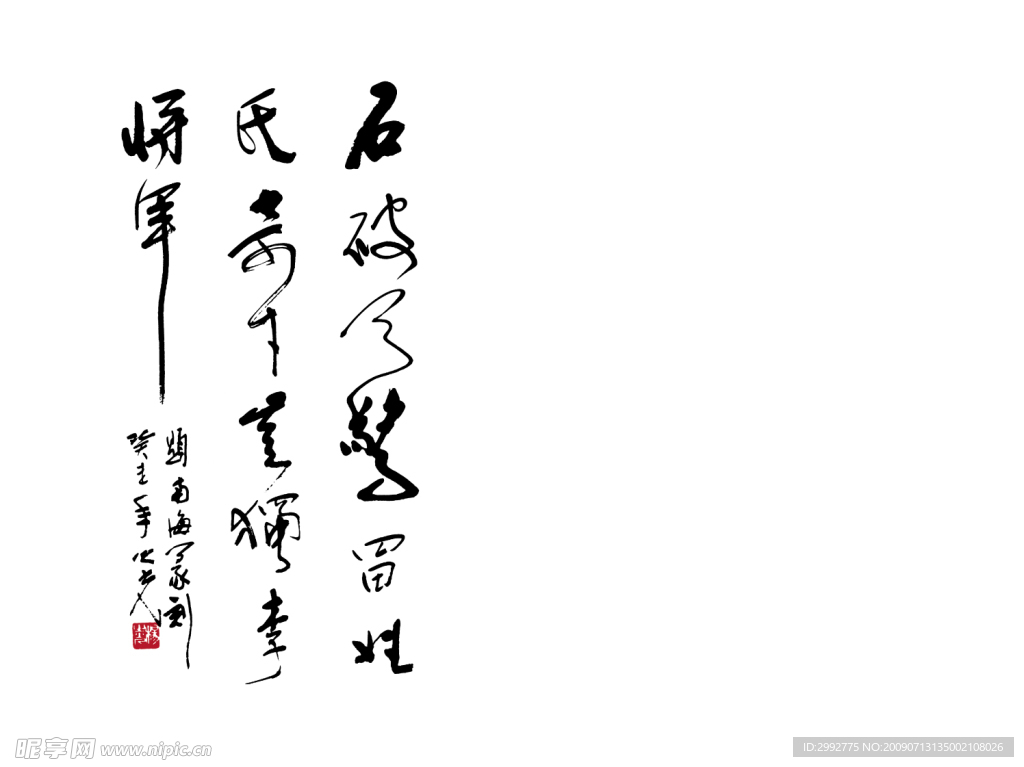 石破天驚留姓
氏奇才豈獨李
將軍
題南海篆刻
癸亥年
昵享网 www.nipic.cn
ID:2992775 NO:20090713135002108026